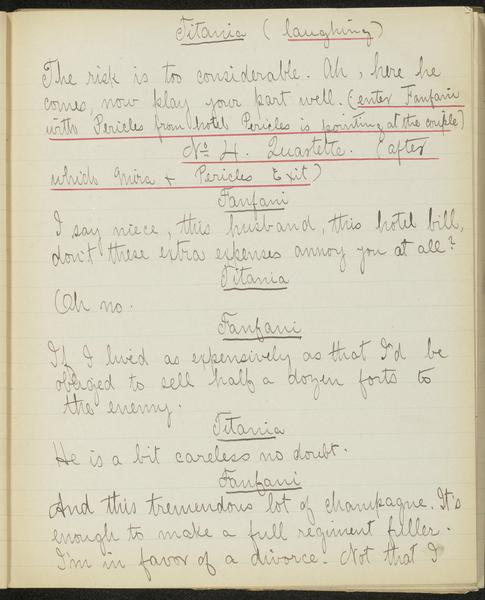 Titania (laughing)
The risk is too considerable. Ah, here he
comes, now play your part well. (enter Fanfani
with Pericles from hotel Pericles is pointing at the couple)
No 4. Quartette. (after
which Mira + Pericles Exit)
Fanfani
I say niece, this husband, this hotel bill,
don't these extra expenses annoy you at all?
Titania
Oh no.
Fanfani
If I lived as expensively as that I'd be
obliged to sell half a dozen forts to
the enemy.
Titania
He is a bit careless no doubt.
Fanfani
And this tremendous lot of champagne. It's
enough to make a full regiment fuller.
I'm in favor of a divorce. Not that I